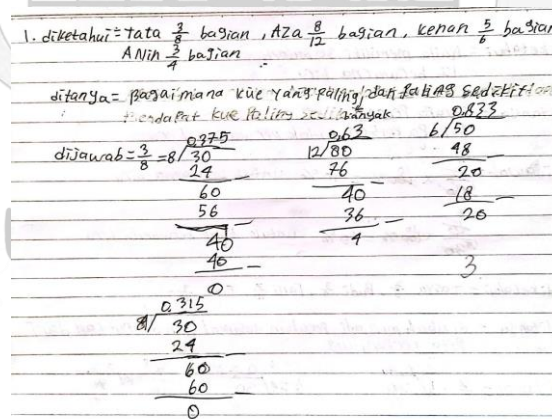 1. diketahui = Tata 3/8 bagian, AzA 8/12 bagian, kenan 5/6 bagian
ANin 3/4 bagian
ditanya = Bagaimana kue yang paling dan paling sedikit
banyak
dijawab = 3/8 = 8/30 0,375
24
60
56
40
40
0
12/80 0,63
76
40
36
4
6/50 0,833
48
20
18
20
3
8/30 0,315
24
60
60
0